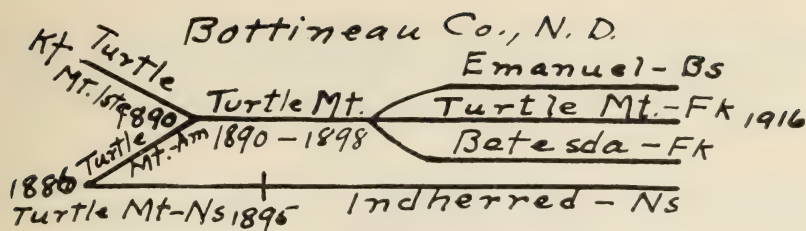 Bottineau Co., N. D.
Kt Turtle
Mt. 1ste 1890
Turtle Mt.
1890-1898
Emanuel-Bs
Turtle Mt.-Fk 1916
Betesda-Fk
Turtle
Mt.-Am
1886
Turtle Mt-Ns 1895
Indherred-Ns